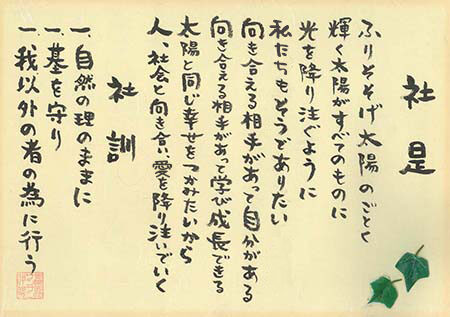 社是
ふりそそげ太陽のごとく
輝く太陽がすべてのものに
光を降り注ぐように
私たちもそうでありたい
向き合える相手があって自分がある
向き合える相手があって学び成長できる
太陽と同じ幸せをつかみたいから
人、社会と向き合い愛を降り注いでいく
社訓
一、自然の理のままに
一、基を守り
一、我以外の者の為に行う